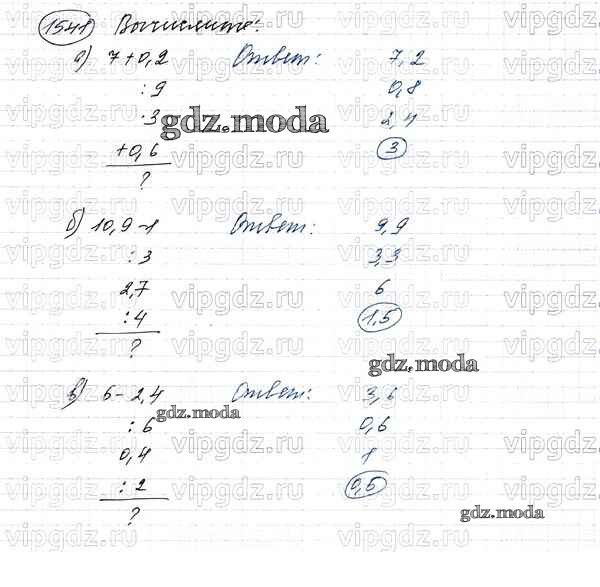 1541 Вычислите:
а) 7+0,2 Ответ: 7,2
:9 0,8
·3 2,4
+0,6 3
?
б) 10,9-1 Ответ: 9,9
:3 3,3
2,7 6
:4 1,5
?
в) 6-2,4 Ответ: 3,6
:6 0,6
0,4 1
:2 0,5
?
gdz.moda
gdz.moda
gdz.moda
gdz.moda
vipgdz.ru